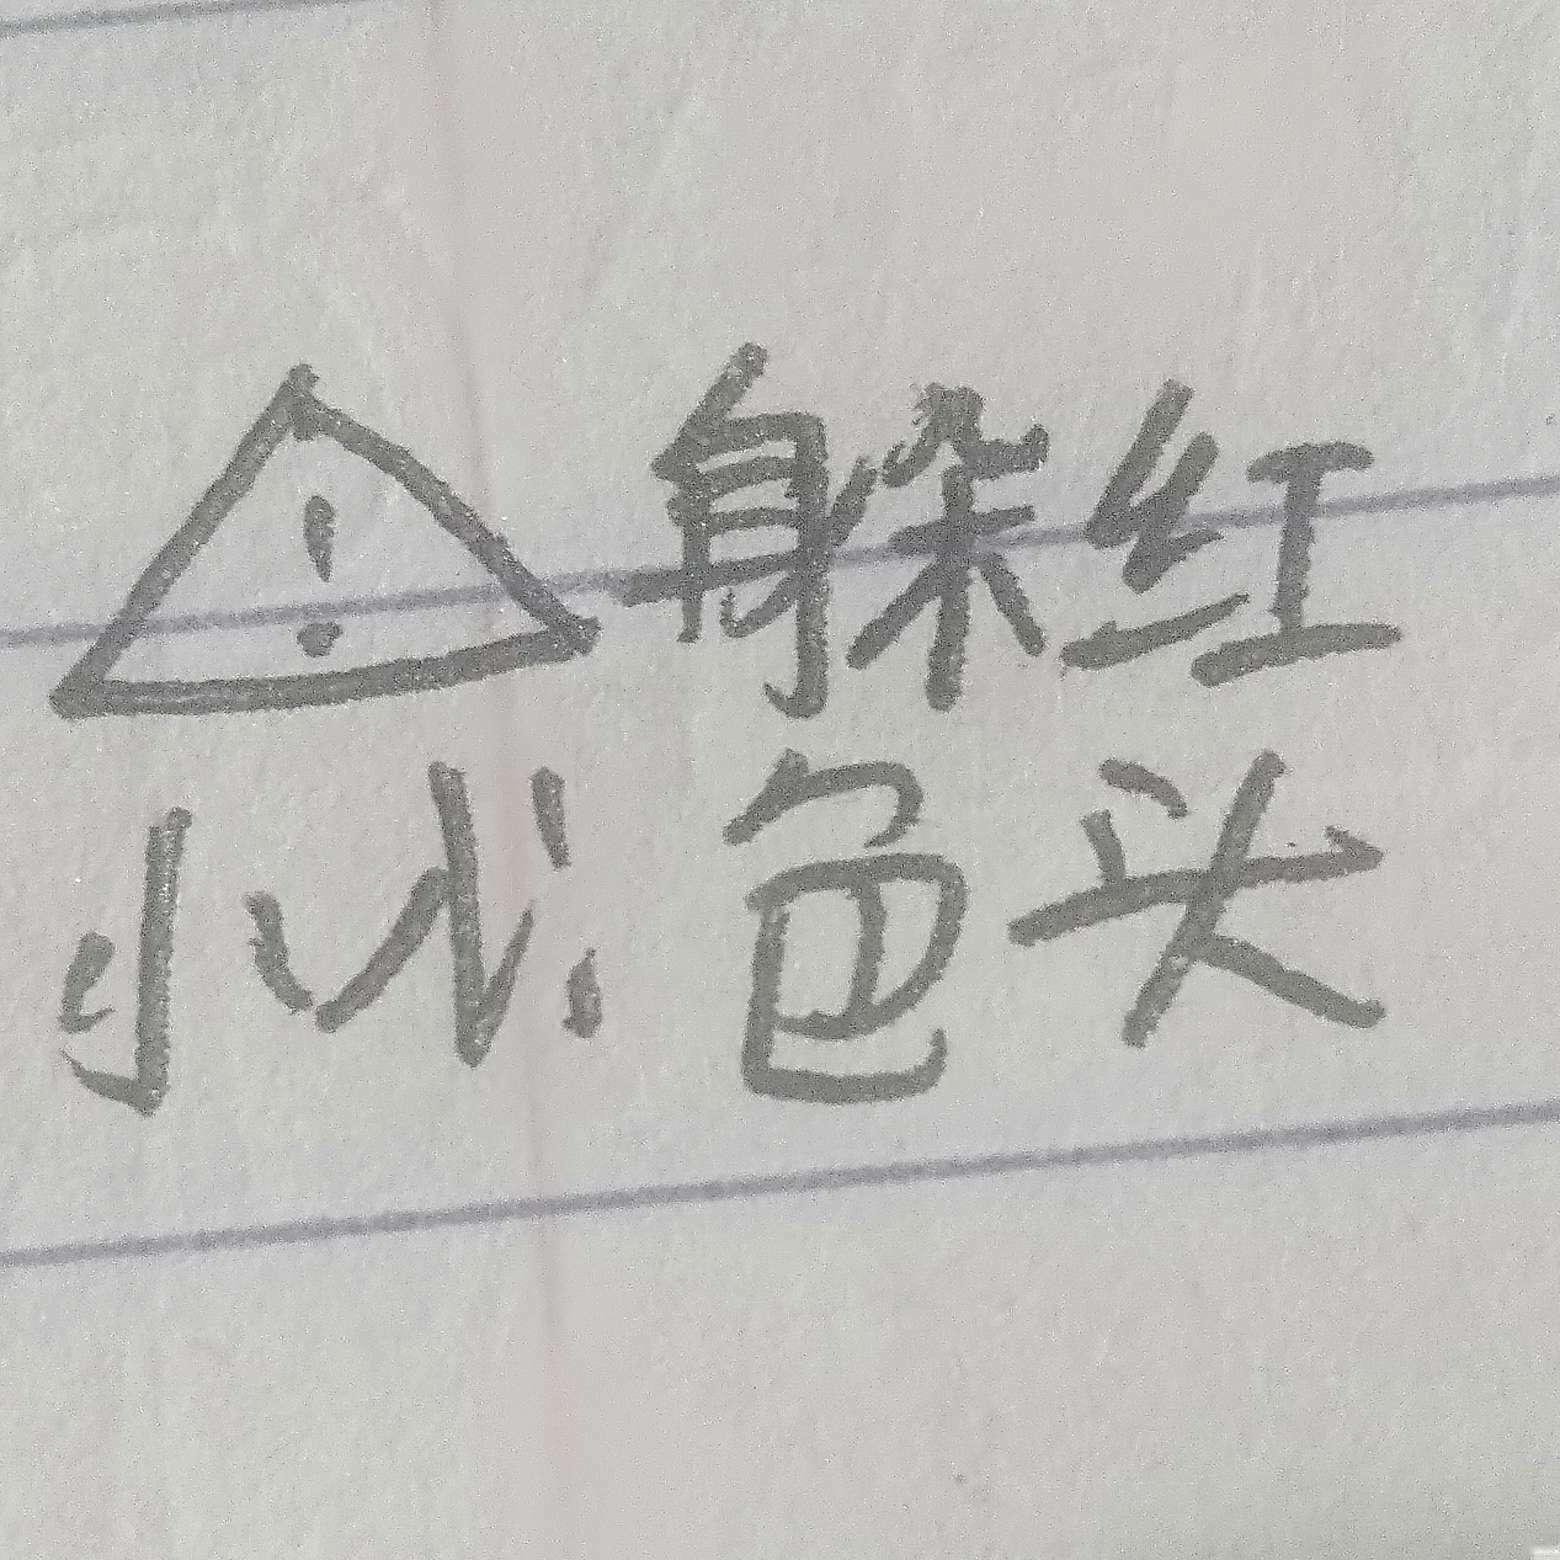 ⚠ 躲红
小心 色头